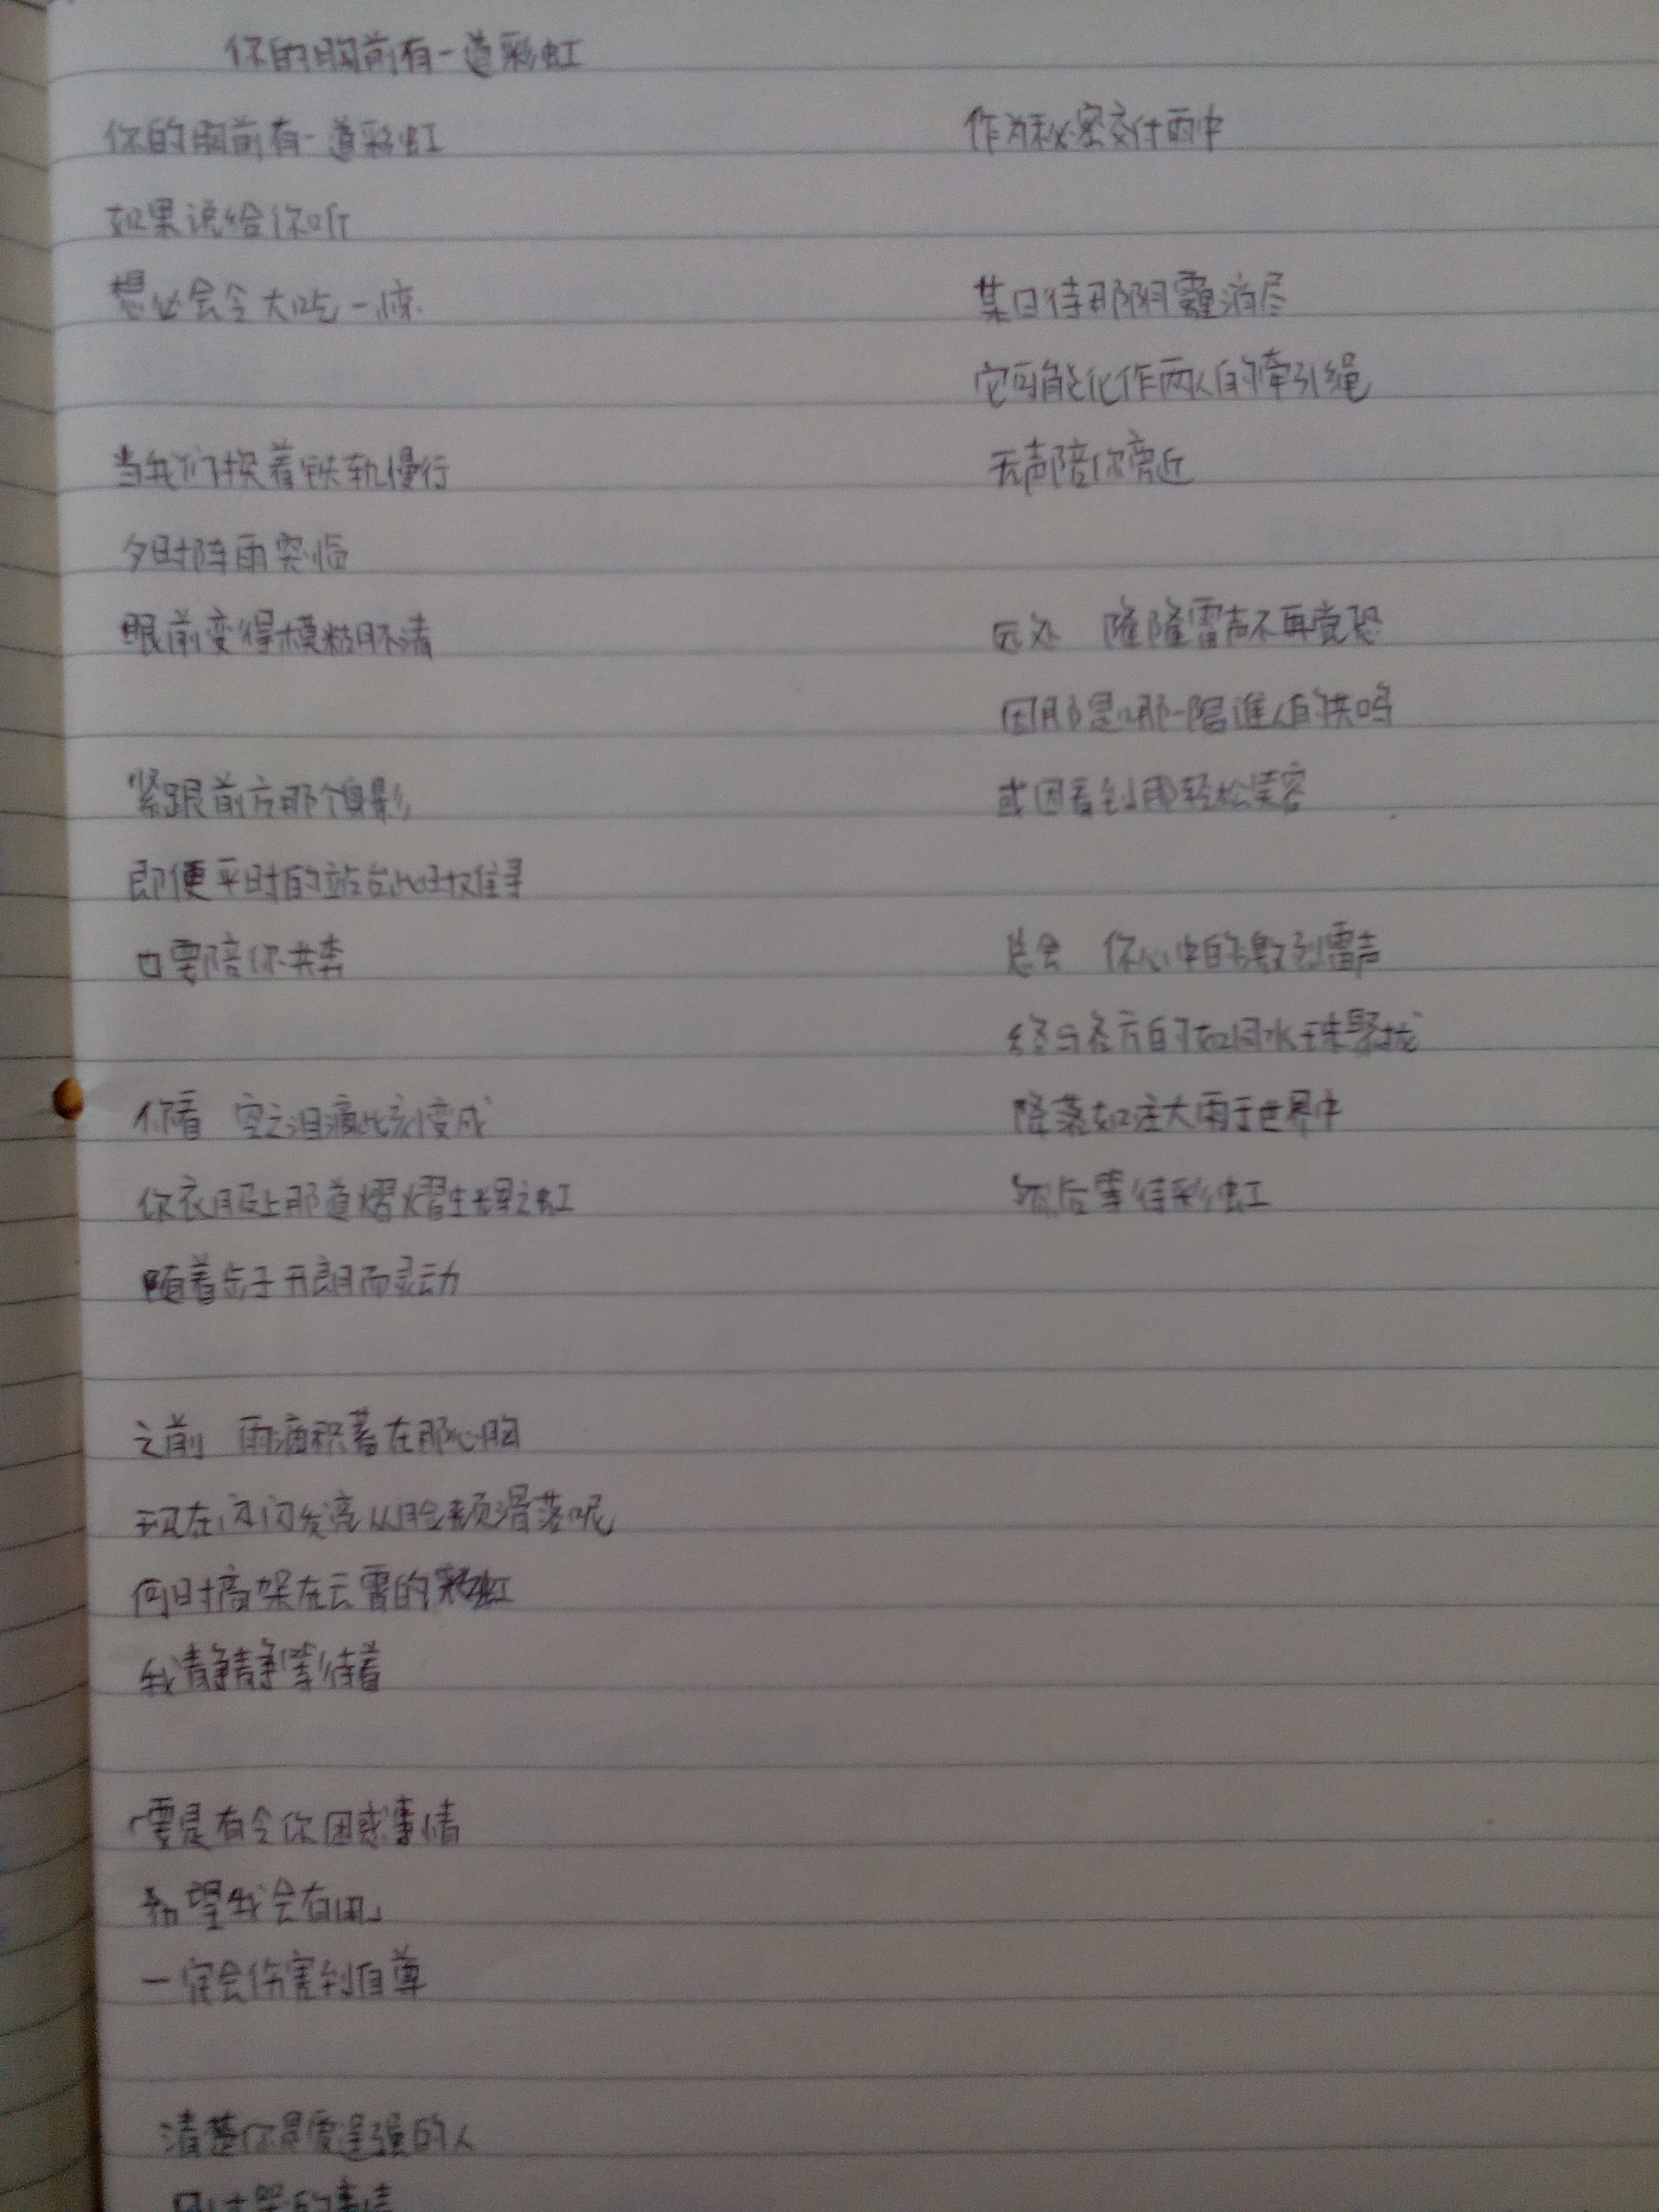 你的胸前有一道彩虹
你的胸前有一道彩虹
如果说给你听
想必会令大吃一惊
当我们挨着铁轨慢行
夕时阵雨突临
眼前变得模糊不清
紧跟前方那个身影
即便平时的站台此时难寻
也要陪你共奔
你看 空之泪痕此刻变成
你衣服上那道熠熠生辉之虹
随着步子开朗而灵动
之前 雨滴积蓄在那心胸
现在闪闪发亮从脸颊滑落呢
何时高架在云霄的彩虹
我静静等待着
「要是有令你困惑事情
希望我会有用」
一定会伤害到自尊
清楚你是爱逞强的人
作为秘密交付雨中
某日待那阴霾消尽
它可能化作两人的牵引绳
无声陪你旁近
远处 隆隆雷声不再觉恐
因那是哪一陌谁人的共鸣
或因看到那轻松笑容
总会 你心中的激烈雷声
终与各方的如同水珠聚拢
降落如注大雨于世界中
然后等待彩虹